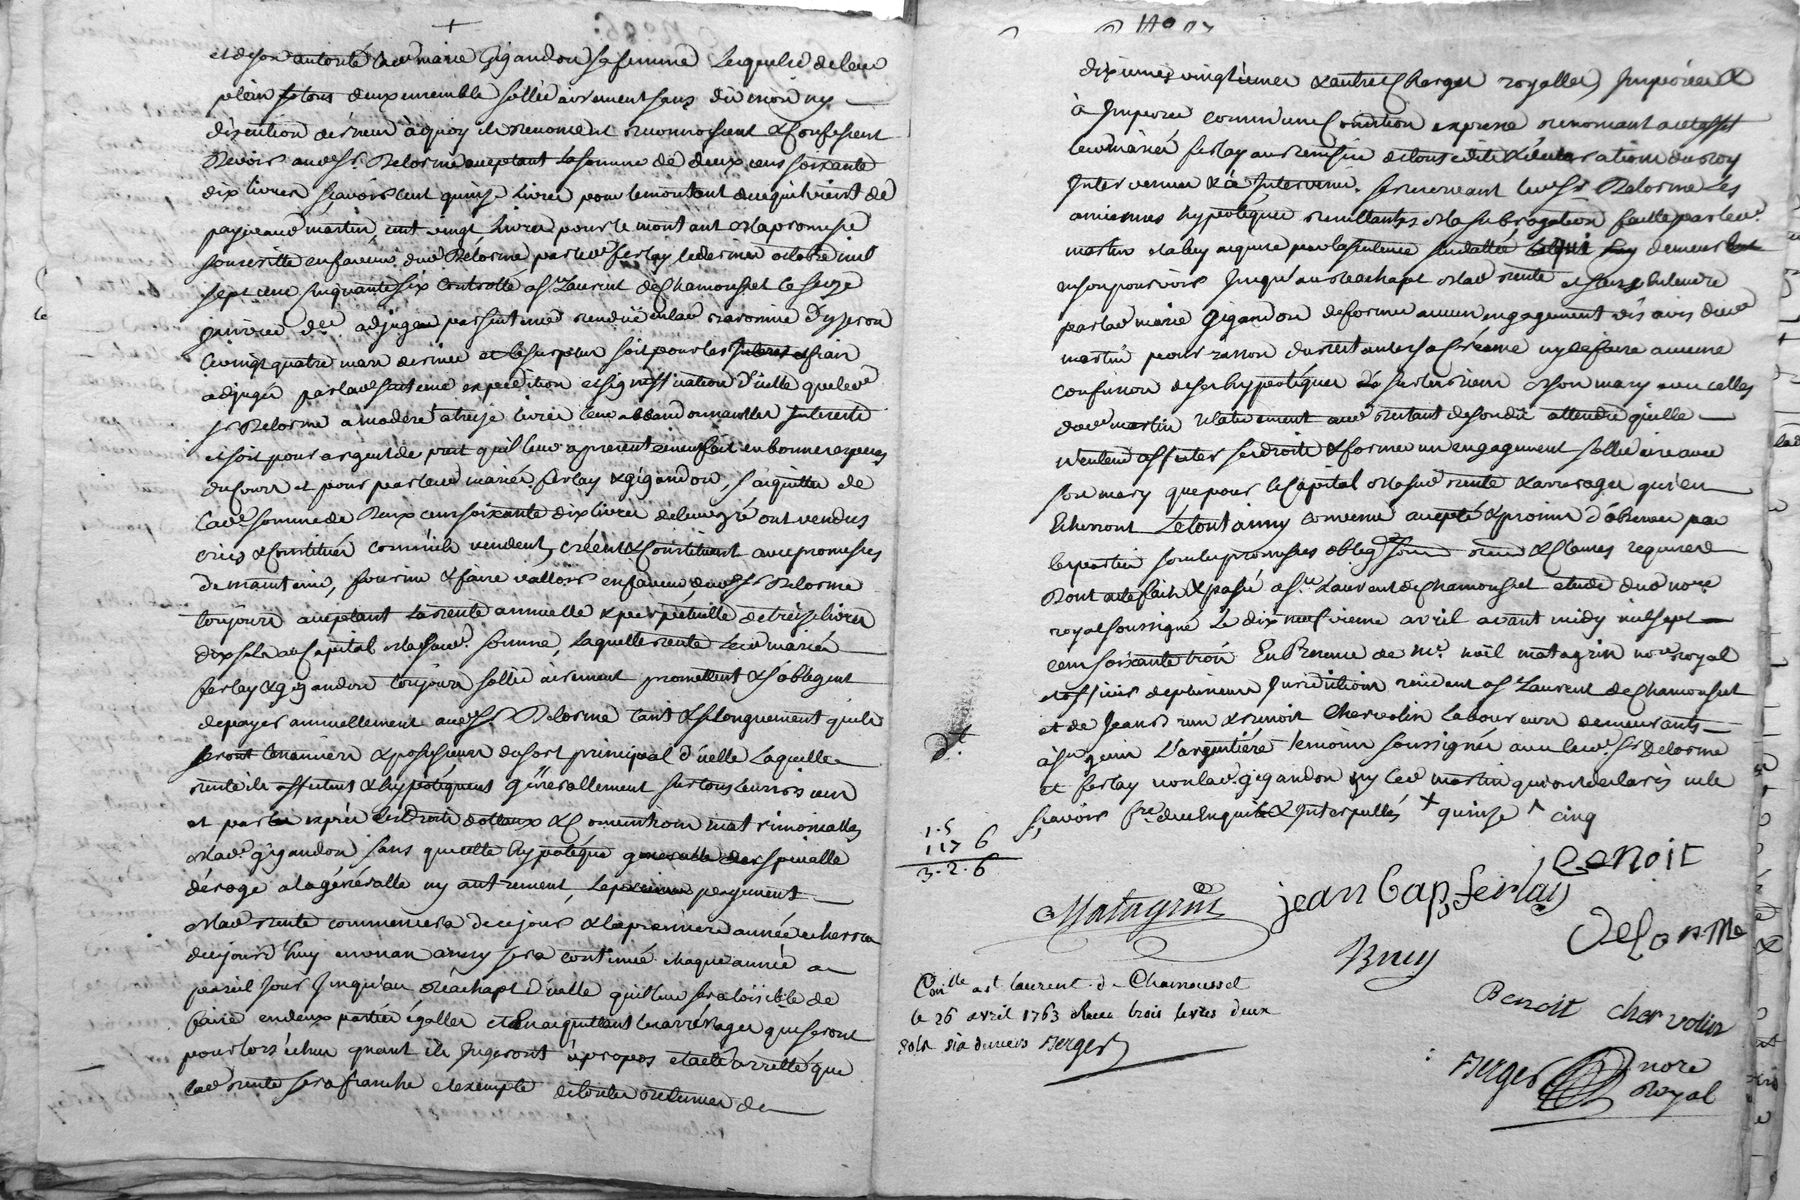 et de son autorité lad. marie Gigandon sa femme Lesquels de leur
plein tous deux ensemble sollidairement sans division ny
discution à quoy ils renoncent reconnoissent & confessent
Devoir aud. Sr. Delorme aceptant la somme de deux cens soixante
dix livres sçavoir cent quinze livres pour le montant de ce qui vient de
payer aud martin, cent vingt livres pour le montant de la promesse
souscritte en faveur dud. Delorme par led. ferlay le dernier octobre mil
sept cens cinquante six Controllé a St. Laurent de Chamousset le seize
janvier adjugée par sentence rendue en lad baronnie d'yzeron
le vingt quatre mars dernier et le surplus soit pour les frais
adjugés par lad. sentence expédition et signiffication d'icelle que led.
Sr Delorme a modéré a treize livres
et soit pour argent de prêt qu'il leur a présentement fait en bonnes especes
du cours et pour par lesd mariés ferlay & gigandon, s'aquitter de
lad. somme de Deux cens soixante dix livres de leur gré ont vendus
créés & constitués comm'ils vendent, créent & constituent avec promesses
de maintenir, fournir & faire valloir en faveur dud. Sr Delorme
toujours aceptant la rente annuelle & perpetuelle de treize livres
dix sols au Capital de lad. somme, laquelle rente lesd mariés
ferlay & gigandon toujours sollidairement promettent & s'obligent
de payer annuellement aud. Sr Delorme tant & si longuement qu'ils
seront tenanciers & possesseurs du sort principal d'icelle Laquelle
rente ils affectent & hypotéquent généralement sur tous leurs biens
et par exprès les droits dottaux & Conventions matrimonialles
de lad. gigandon sans que cette hypotéque generalle spécialle
déroge a la générale ny autrement, le premier payement
de lad rente commencera de ce jour & la premiere année echerra
d'aujourd'huy en un an & sera continué chaque année a
pareil jour jusqu'au reachapt d'icelle qu'il leur sera loisible de
faire en deux parties égalles et en aquittant les arrérages qui seront
pour lors échus quant ils jugeront à propos et a été arretté que
lad rente sera franche & exempte de toutes retenues de
dixiemes vingtiemes & autres Charges royalles, Imposées &
à Imposer comm'une Condition expresse renoncant a cet effet
lesd mariés ferlay au bénéfice de tous edits & déclarations du roy
Intervenus & à Intervenir. se reservant led. Sr Delorme les
anciennes hypotéques resultantes de la subrogation faitte par led.
martin
en son pouvoir jusqu'au reachapt de lad rente et sans entendre
par lad marie Gigandon deformer aucun engagement vis avis dud
martin pour raison du restant de sa créance ny de faire aucune
confusion de ses hypotéques sur les biens de son mary avec celles
dud martin relativement aud restant de son dû attendu qu'elle
n'entend affecter ses droits & former un engagement sollidaire avec
son mary que pour le Capital de lad rente & arrerages qui en
Echerront Le tout ainsy convenu accepté & promis d'observer par
les parties sous les promesses obligons. soum. ren. & Clauses requises
Dont acte fait & passé a St. Laurent de Chamousset etude dud nore
royal soussigné Le dix neufvieme avril avant midy mil sept
cens soixante trois En Présence de Me. noël matagrin nore. royal
et officier de plusieurs Juridictions résident a St Laurent de Chamousset
et de Jean & Benoit Chervolin Laboureurs demeurants
à St genis L'argentière temoins soussignés avec led. Sr Delorme
et ferlay non lad. gigandon ny led martin qui ont declarés ne le
sçavoir fre. de ce Enquis & Interpellés + quinze ^ cinq
1. 5
1 17 6
3. 2. 6
Benoit
Matagrin
jean bap ferlay
Delorme
Bruy
Conlle a st laurent de Chamousset
le 26 avril 1763 Receu trois livres deux
sols six deniers Berger
Benoit chervolin
Berger nore
Royal